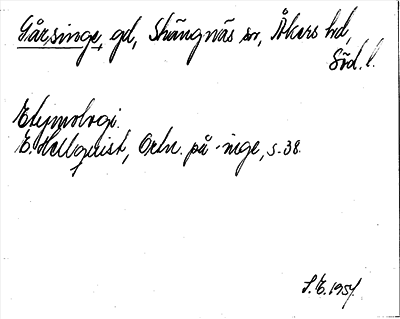 Gåsinge, gd, Skängnäs sn, Åkers hd,
Söd. l.
Etymologi.
E. Hellquist, Ortn. på -inge, s. 38.
S. E. 1951.